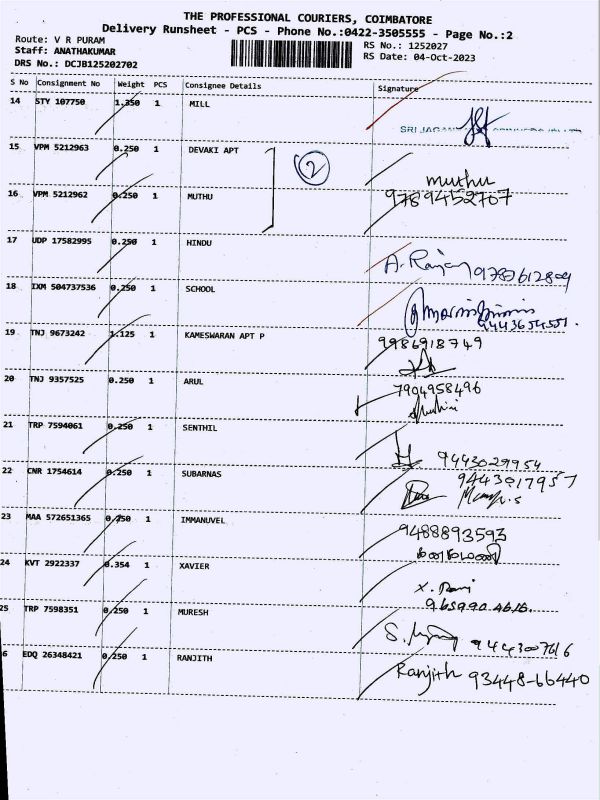 THE PROFESSIONAL COURIERS, COIMBATORE
Delivery Runsheet - PCS - Phone No.:0422-3505555 - Page No.:2
Route: V R PURAM
Staff: ANATHAKUMAR
DRS No.: DCJB125202702
RS No.: 1252027
RS Date: 04-Oct-2023
S No Consignment No Weight PCS Consignee Details Signature
14 STY 107750 1.350 1 MILL
SRI JAGAN
15 VPM 5212963 0.250 1 DEVAKI APT
2
muthu
16 VPM 5212962 0.250 1 MUTHU 9789452707
17 UDP 17582995 0.250 1 HINDU
A. Rajan 9787612809
18 IXM 504737536 0.250 1 SCHOOL
9443654551.
19 TNJ 9673242 1.125 1 KAMESWARAN APT P 9986918749
20 TNJ 9357525 0.250 1 ARUL 7904958496
21 TRP 7594061 0.250 1 SENTHIL
9443029954
22 CNR 1754614 0.250 1 SUBARNAS 9443017957
23 MAA 572651365 0.250 1 IMMANUVEL 9488893593
24 KVT 2922337 0.354 1 XAVIER
X. Rani
25 TRP 7598351 0.250 1 MURESH
S. 9443007616
6 EDQ 26348421 0.250 1 RANJITH Ranjith 93448-66440